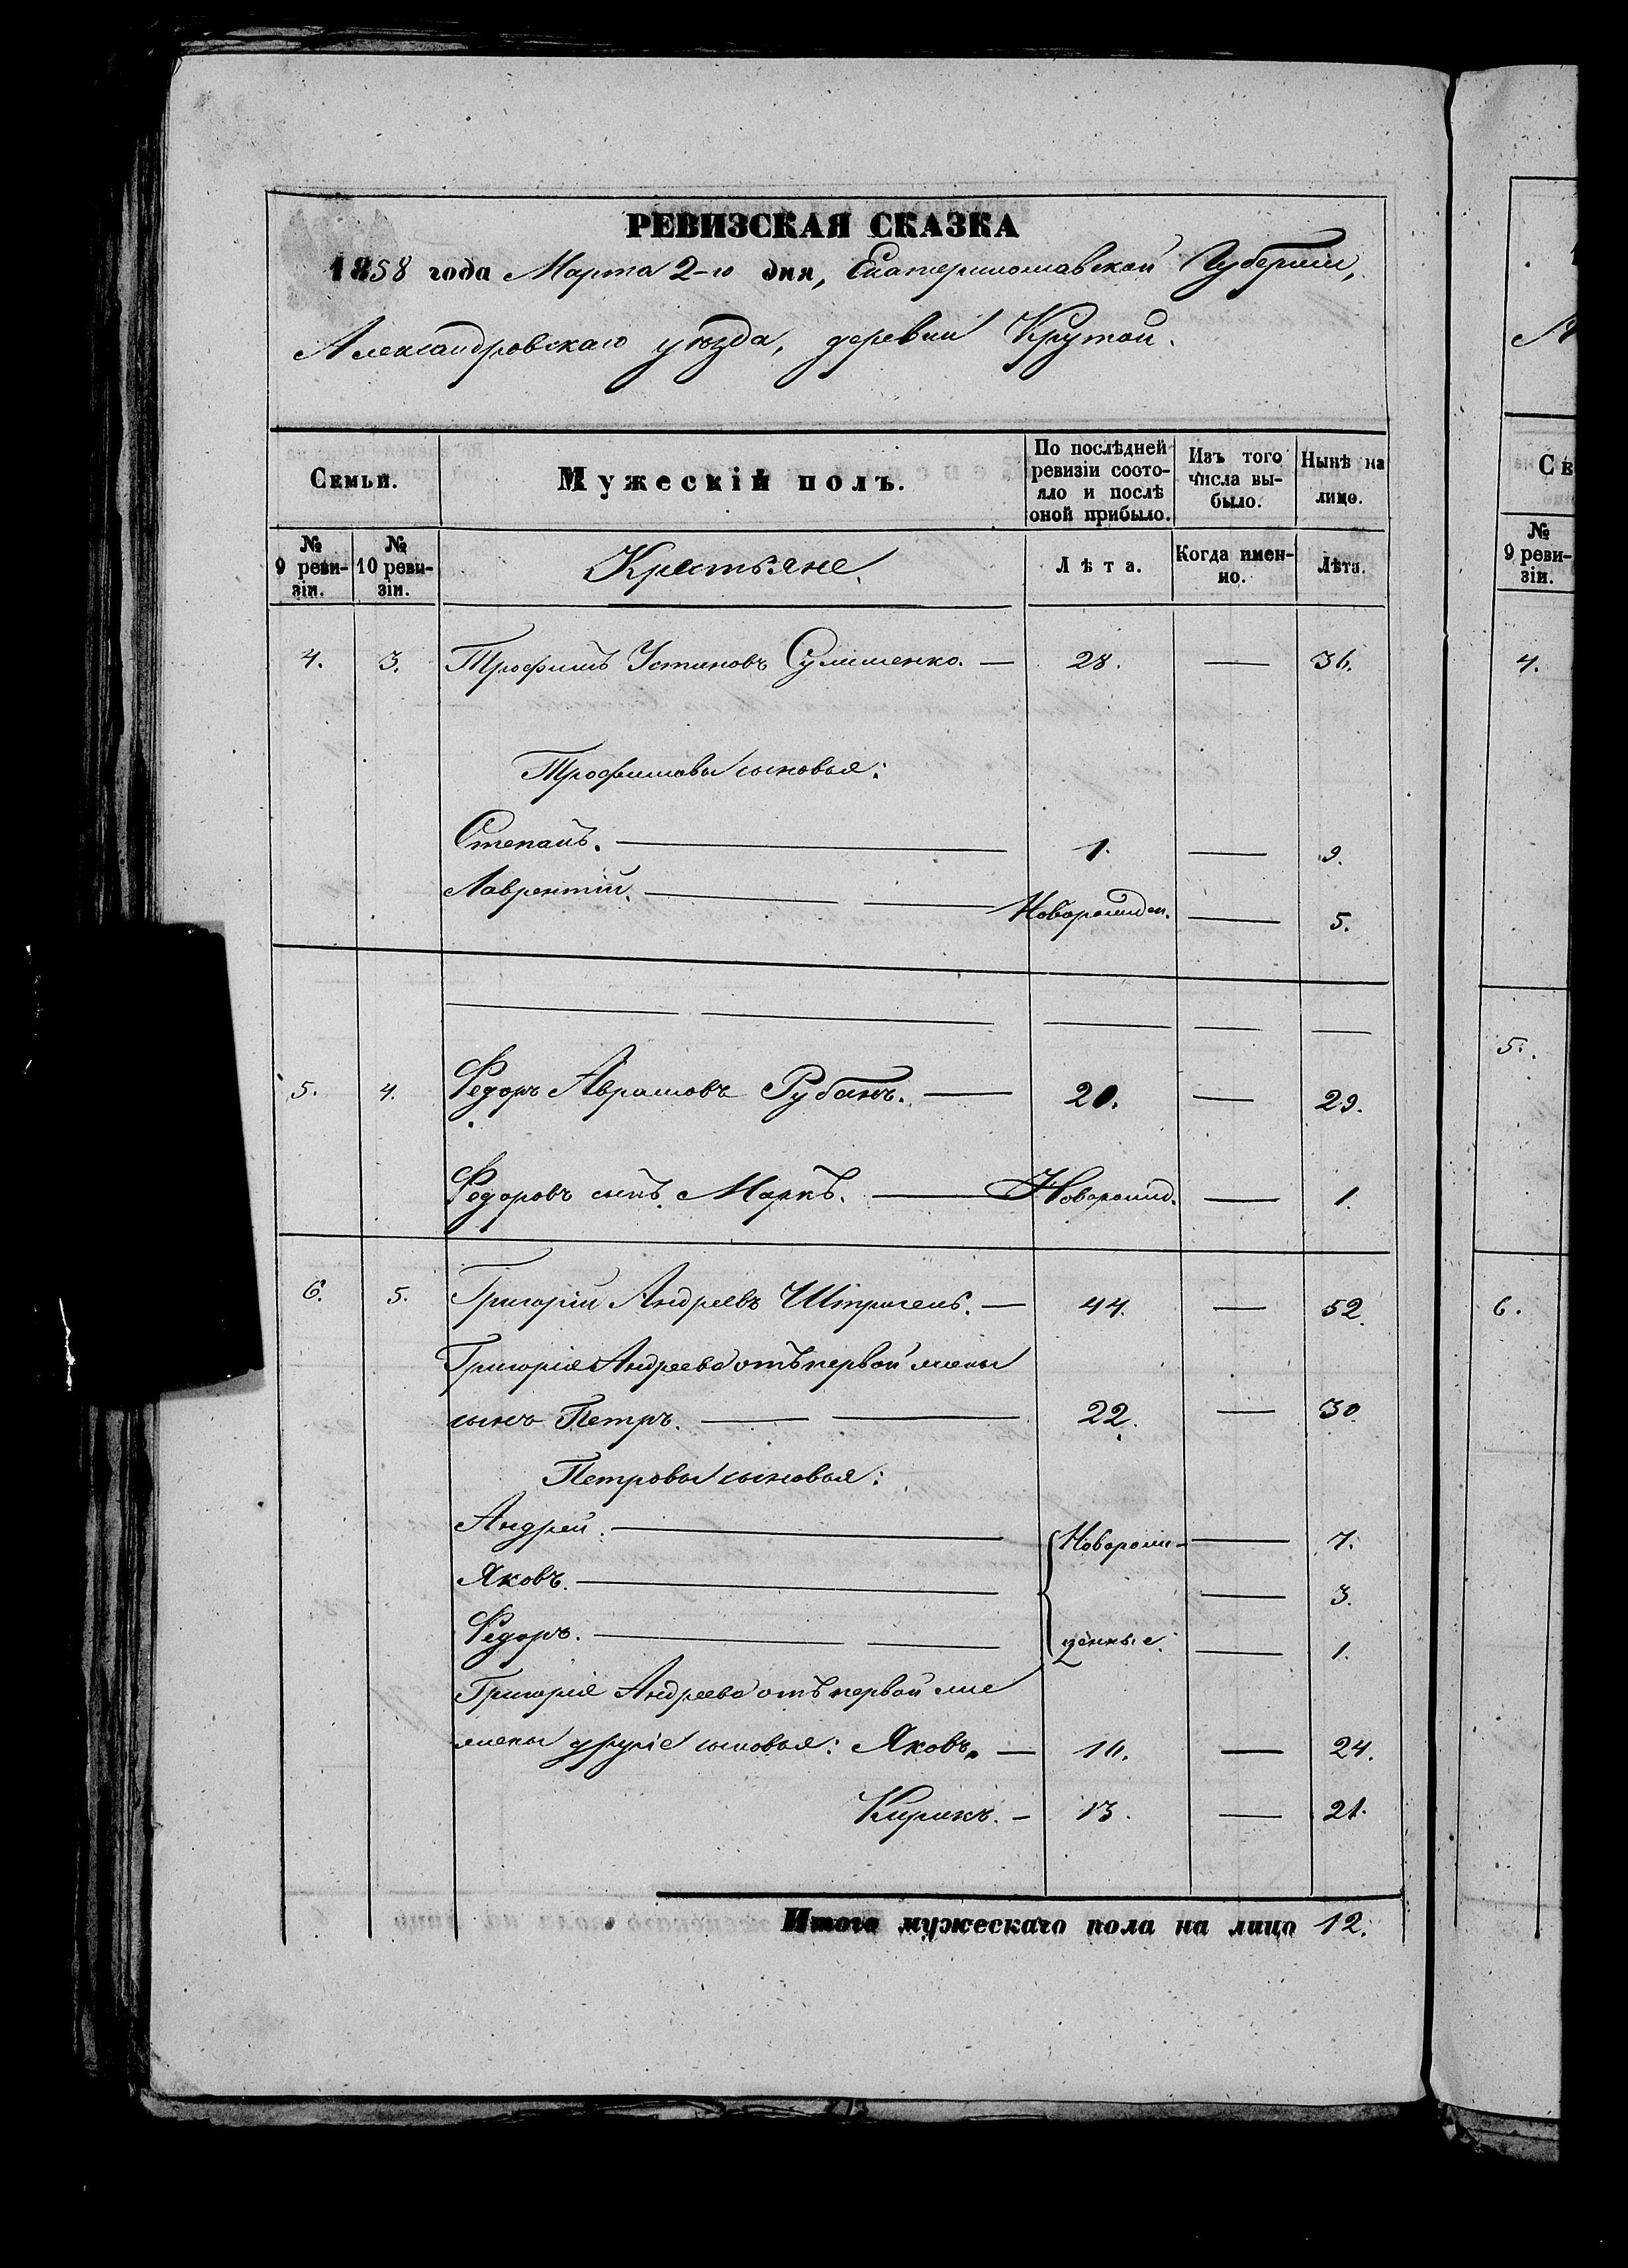 РЕВИЗСКАЯ СКАЗКА
1858 года Марта 2-го дня, Екатеринославской Губерніи,
Александровскаго уѣзда, деревни Крутой.
Семьи.
Мужескій полъ.
По послѣдней ревизіи состояло и послѣ оной прибыло.
Изъ того числа выбыло.
Нынѣ на лицо.
№ 9 ревизіи.
№ 10 ревизіи.
Крестьяне
Лѣта.
Когда именно.
Лѣта.
4. 3. Трофимъ Устиновъ — 28. — 36.
Трофимовы сыновья:
Степанъ. — 1. — 9.
Лаврентій. — Новорожден. — 5.
5. 4. Федоръ Аврамовъ Рубанъ. — 20. — 29.
Федоровъ сынъ Маркъ. — Новорожд. — 1.
6. 5. Григорій Андреевъ — 44. — 52.
Григорія Андреева отъ первой жены
сынъ Петръ. — 22. — 30
Петровы сыновья:
Андрей. — Новорож- — 7.
Яковъ. — — 3.
Федоръ. — денные. — 1.
Григорія Андреева отъ первой же
жены другіе сыновья: Яковъ. — 16. — 24.
Кирикъ. — 13. — 21.
Итого мужескаго пола на лицо 12.
Се
№ 9 ревизіи.
4.
5.
6.